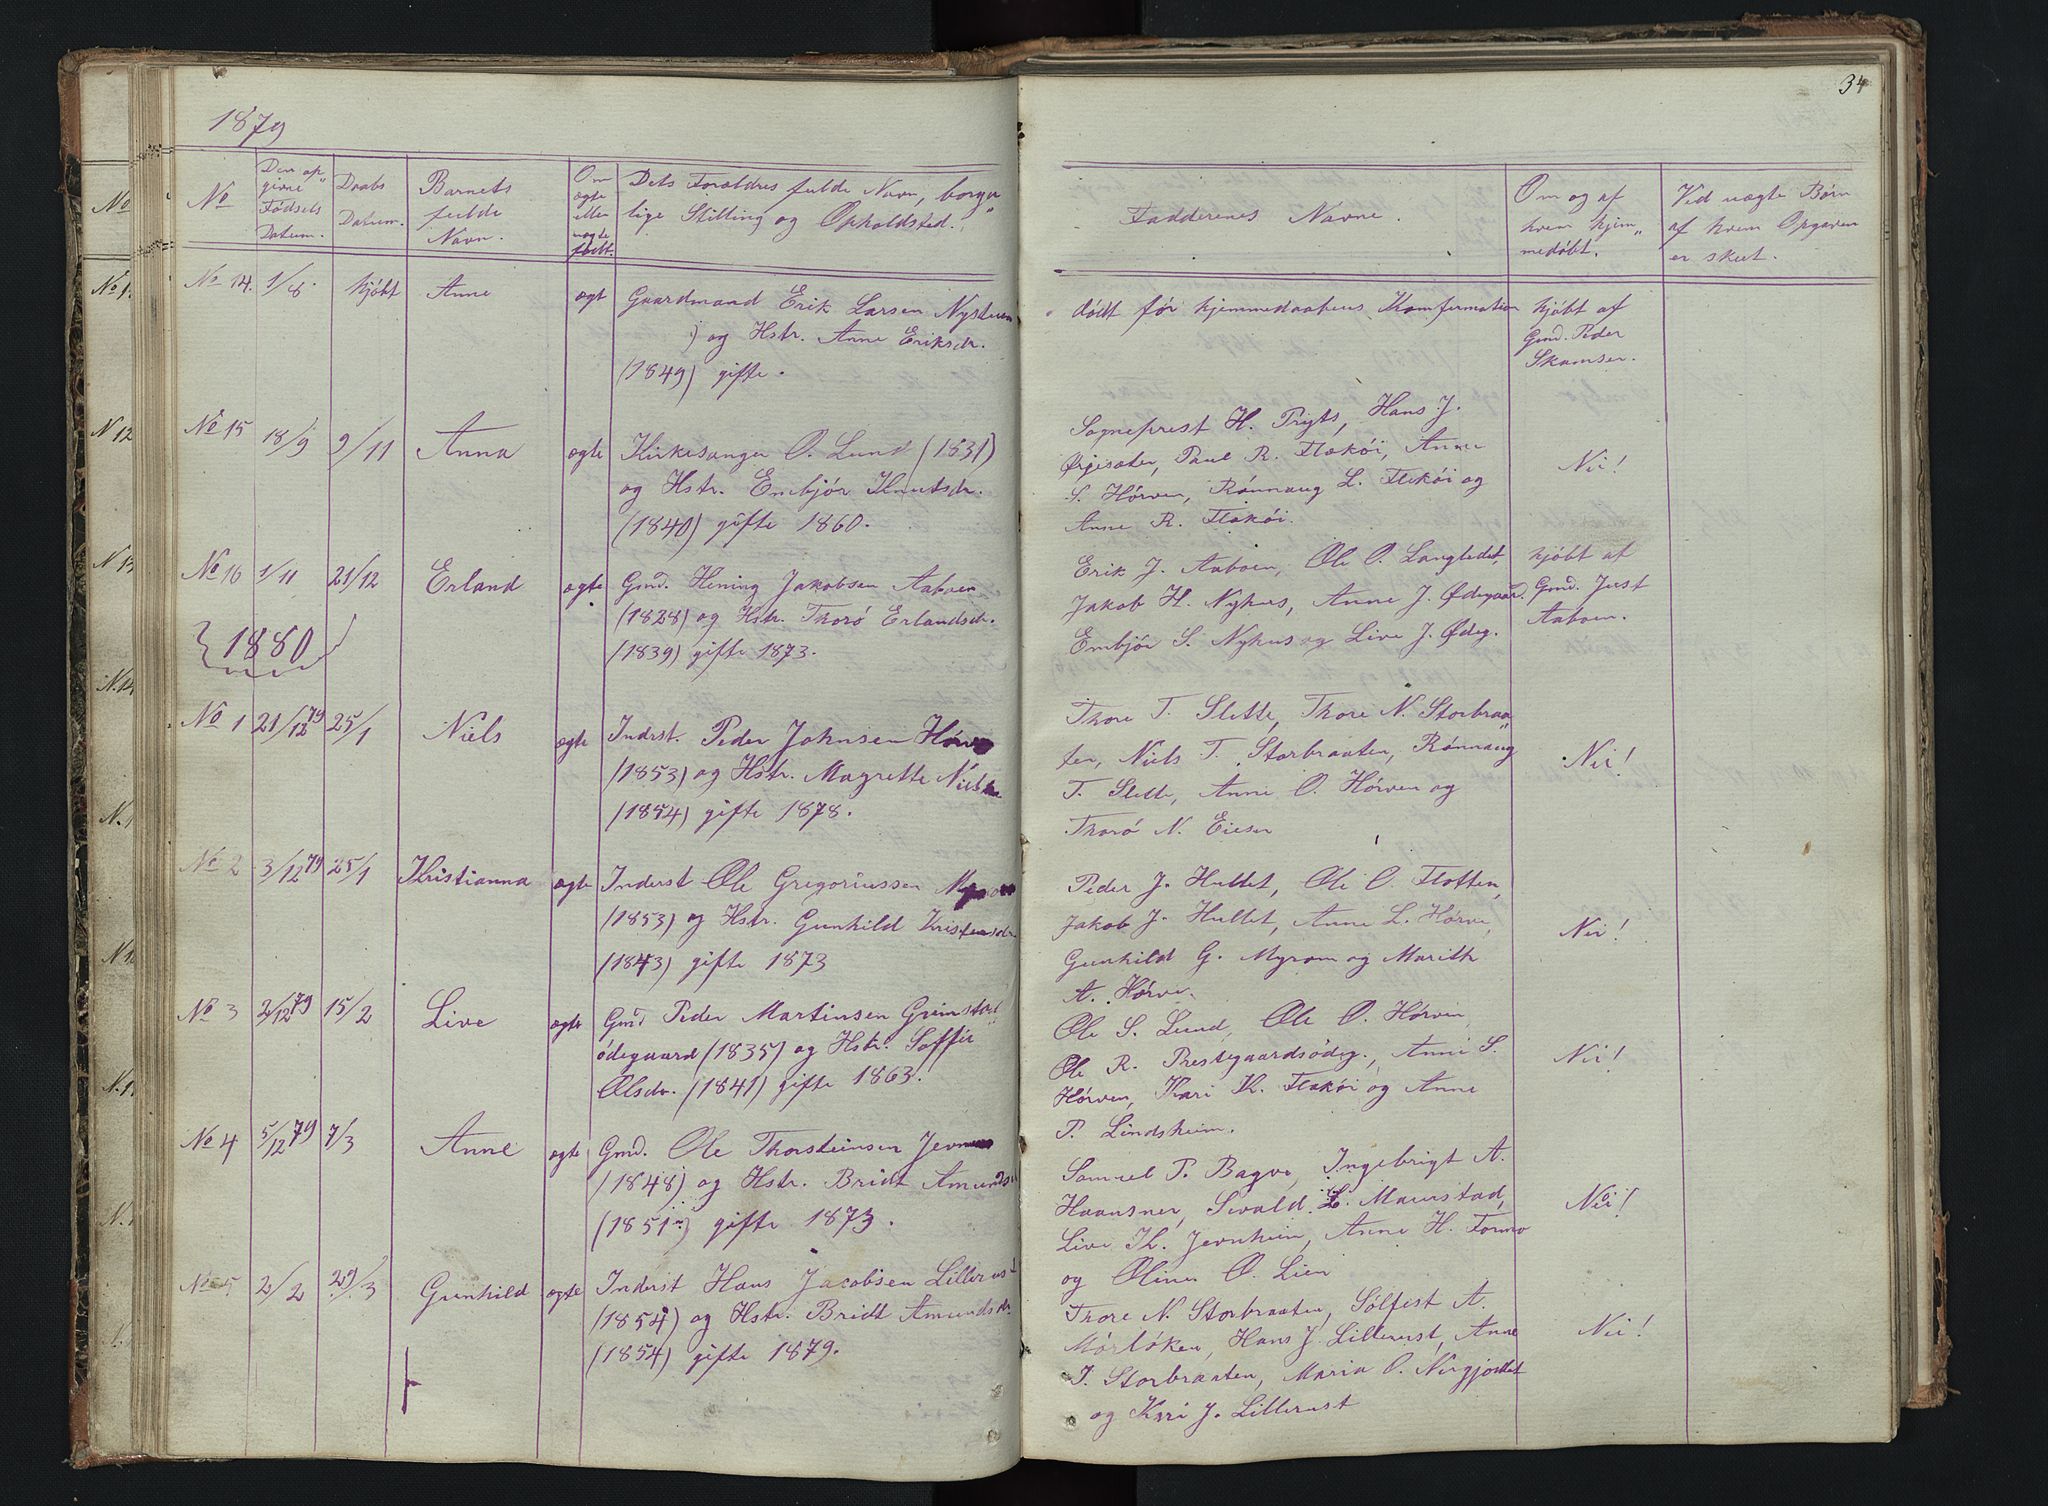 1879
34
No
Den op„
givne
Fødsels
Datum.
Daabs
Datum.
Barnets
fulde
Navn.
Om
ægte
eller
uægte
født.
Dets Forældres fulde Navn, borger„
lige Stilling og Opholdsted.
Fadderenes Navne.
Om og af
hvem hjem„
medøbt.
Ved uægte Børn
af hvem Opgaven
er skeet.
No 14. 1/8 hjdbt Anne ægt Gaardmand Erik Larsen
og Hstr. Anne Eriksdr.
(1849) gifte.
dödt før hjemmedaabens Konfermation
hjdbt af
Gmd. Peder
Skamsar.
No 15 18/9 9/11 Anna ægte Kirkesanger O. Lund (1831)
og Hstr. Embjör Knutsdr.
(1840) gifte 1860.
Sogneprest H. Prytz, Hans J.
Paul R. Flæköi, Anne
S. Hörven, Rönnaug L. Fleköi og
Anne R. Flæköi.
Nei!
No 16 1/11 21/12 Erland ægte Gmd. Hening Jakobsen Aaboen
(1828) og Hstr. Thorö Erlandsdr.
(1839) gifte 1873.
Erik J. Aaboen, Ole O. Langledet,
Jakob H. Nyhus, Anne J. Ødegaard.
Embjör S. Nyhus og Live J. Ødeg.
hjöbt af
Gmd. Just
Aaboen.
1880
No 1 21/12 79 25/1 Niels ægte Inderst. Peder Johnsen
(1853) og Hstr. Magrette
(1854) gifte 1878.
Thore T. Slette, Thore N. Storbraa„
ten, Niels T. Storbraaten, Rönnaug
T. Slette, Anne O. Hörven og
Thorö N.
Nei!
No 2 3/12 79 25/1 Kristianna ægte Inderst Ole Gregoriussen
(1853) og Hstr. Gunhild Kristensdr.
(1843) gifte 1873
Peder J. Hultet, Ole O. Flotten,
Jakob J. Hultet, Anne L. Hörve,
Gunhild G. Myrom og Marith
A. Hörve.
Nei!
No 3 2/12 79 15/2 Live ægte Gmd Peder Martinsen
ödegaard (1835) og Hstr. Soffie
Olsdr. (1841) gifte 1863.
Ole S. Lund, Ole O. Hörven,
Ole R. Prestegaardsödeg., Anne S.
Hörven, Kari K. Flæköi og Anne
P. Lindsheim.
Nei!
No 4 5/12 79 7/3 Anne ægte Gmd. Ole Thorsteinsen
(1848) og Hstr. Bridt
(1851) gifte 1873.
Samuel P. Bagve, Ingebrigt A.
Haansner, Sivald L. Maurstad,
Live K. Jevnheim, Anne H. Formo
og Oline O. Lien
Nei!
No 5 2/2 29/3 Gunhild ægte Inderst Hans Jacobsen Lillerust
(1854) og Hstr. Bridt Amundsdr.
(1854) gifte 1879.
Thore N. Storbraaten, Sölfest A.
Mörlöken, Hans J. Lillerust, Anne
T. Storbraaten, Maria O. Nergjordet
og Kari J. Lillerust
Nei!